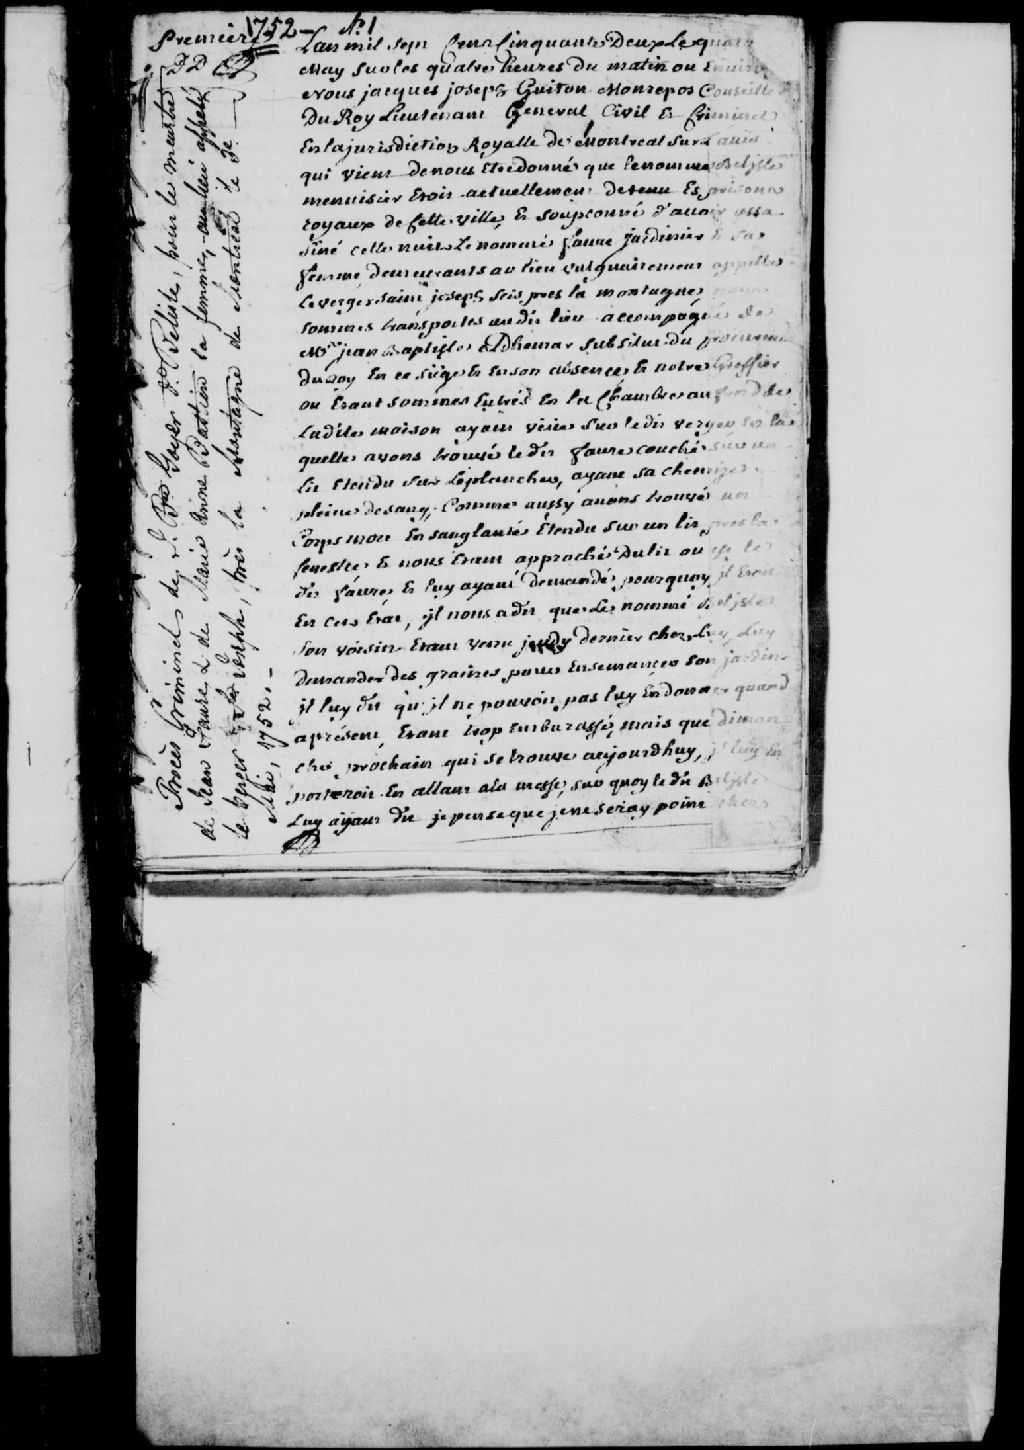 1752 – No 1
Premiere
Procès Criminel de J. Bte Goyer dt Belisle, pour le meurtre
de Jean Faure & de Marie Anne Bastien sa femme, au lieu appelé
le verger St Joseph, près la Montagne de Montréal le 3e
Mai, 1752. –
Lan mil Sept Cent Cinquante Deux Le quatre
May sur les quatre heures du matin ou Environ
Nous jacques joseph Guiton Monrepos Conseiller
Du Roy Lieutenant General Civil Et Criminel
En la jurisdiction Royalle de Montreal Sur Lavis
qui vient de nous Etre donné que le nommé Belisle
menuisier Etoit actuellement detenu Es prisons
royaux de cette ville, Et soupconné d'avoir assa
siné cette nuit Le nommé faure jardinier Et sa
femme demeurants au lieu vulguairement appellé
Le verger saint joseph scis pres la montagne nous
sommes transportes au dit lieu accompagné de
Me jean Baptiste Adhemar substitut du procureur
du Roy En ce siege Et En son absence, Et notre Greffier
ou Etant sommes Entrés En la Chambre au fond de
Ladite maison ayant vüe sur le dit verger En la
quelle avons trouvé le dit faure couché sur un
lit Etendu sur Le planché, ayant sa chemize
pleine de sang, Comme aussy avons trouvé un
Corps mort Ensanglanté Etendu sur un lit pres la
fenestre Et nous Etant approché du lit ou est le
dit faure Et luy ayant demandé pourquoy jl Etoit
En cet Etat, jl nous a dit que Le nommé Belisle
son voisin Etant venu jeudy dernier chez Luy, Luy
demander des graines pour Ensemancer son jardin
jl luy dit qu'jl ne pouvoit pas luy En donner quand
aprésent, Etant trop Embarassé, mais que diman
che prochain qui se trouve aujourdhuy, jl luy En
porteroit En allant a la messe, sur quoy le dit Belisle
Luy ayant dit je pense que je ne seray point chez